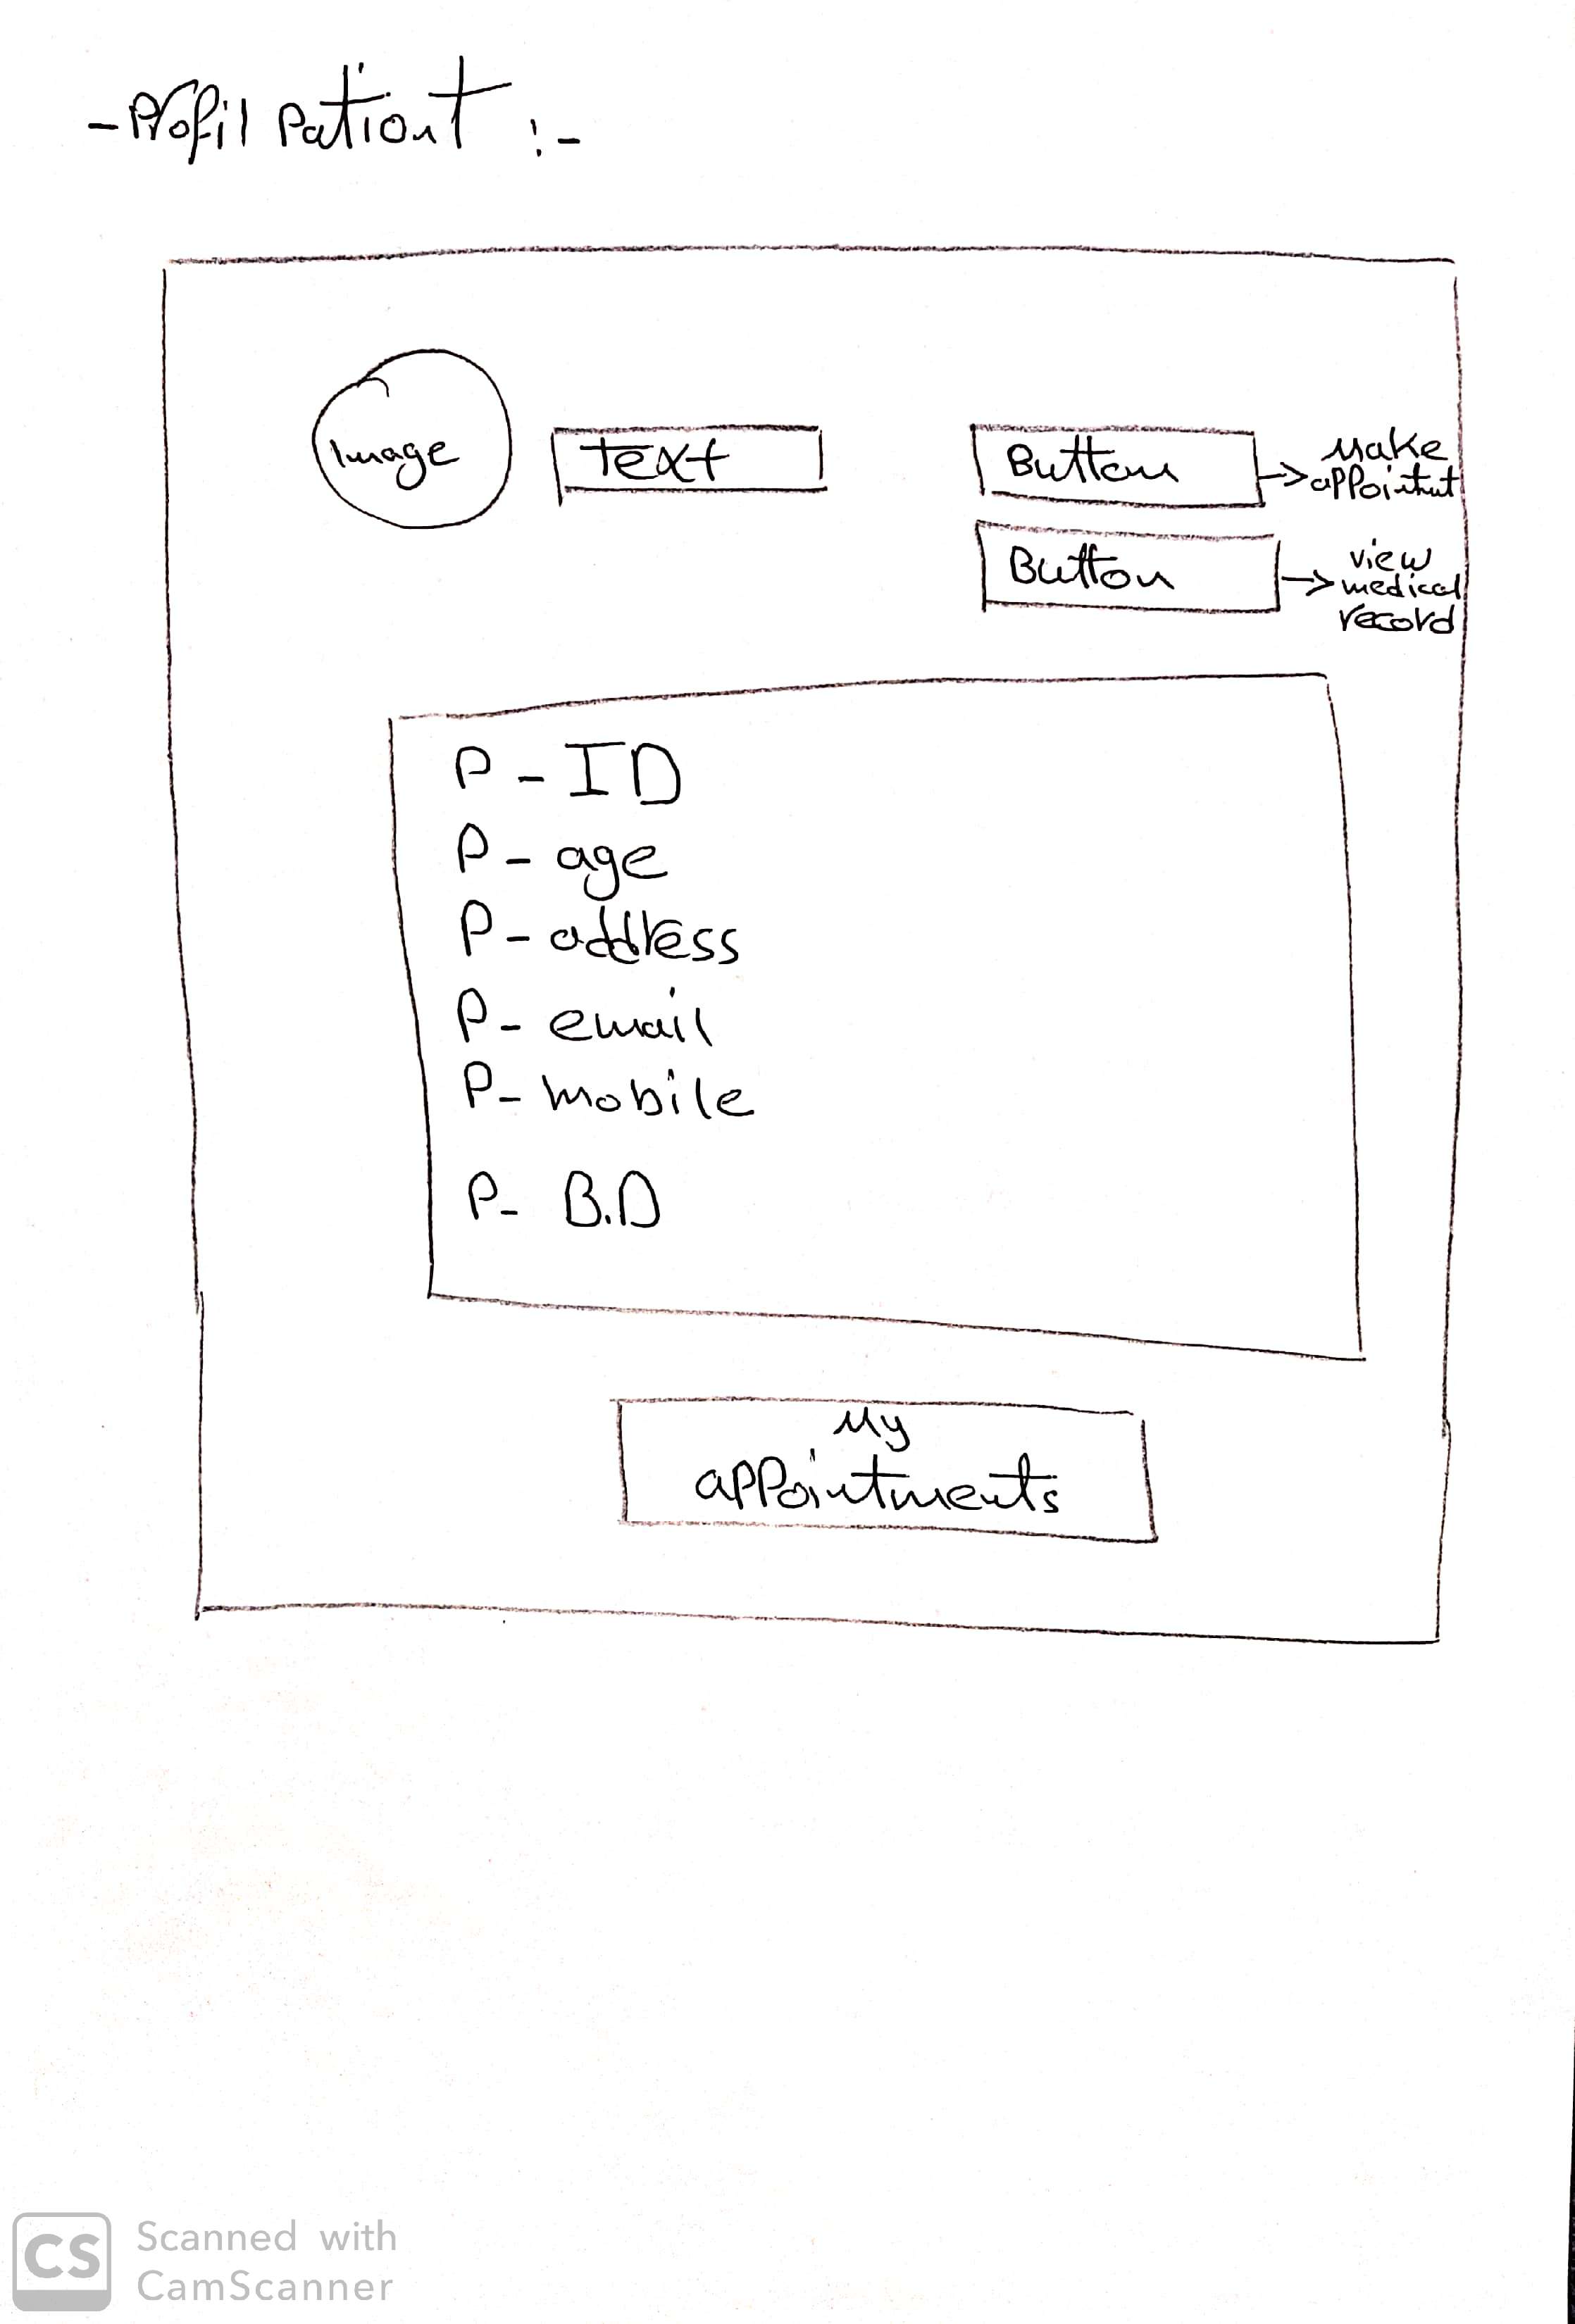 - Profil Pationt :-
Image
text
Button
Make
appointmt
Button
view
medical
record
P - ID
P - age
P - address
P - email
P - mobile
P - B.D
My
appointments
CS
Scanned with
CamScanner